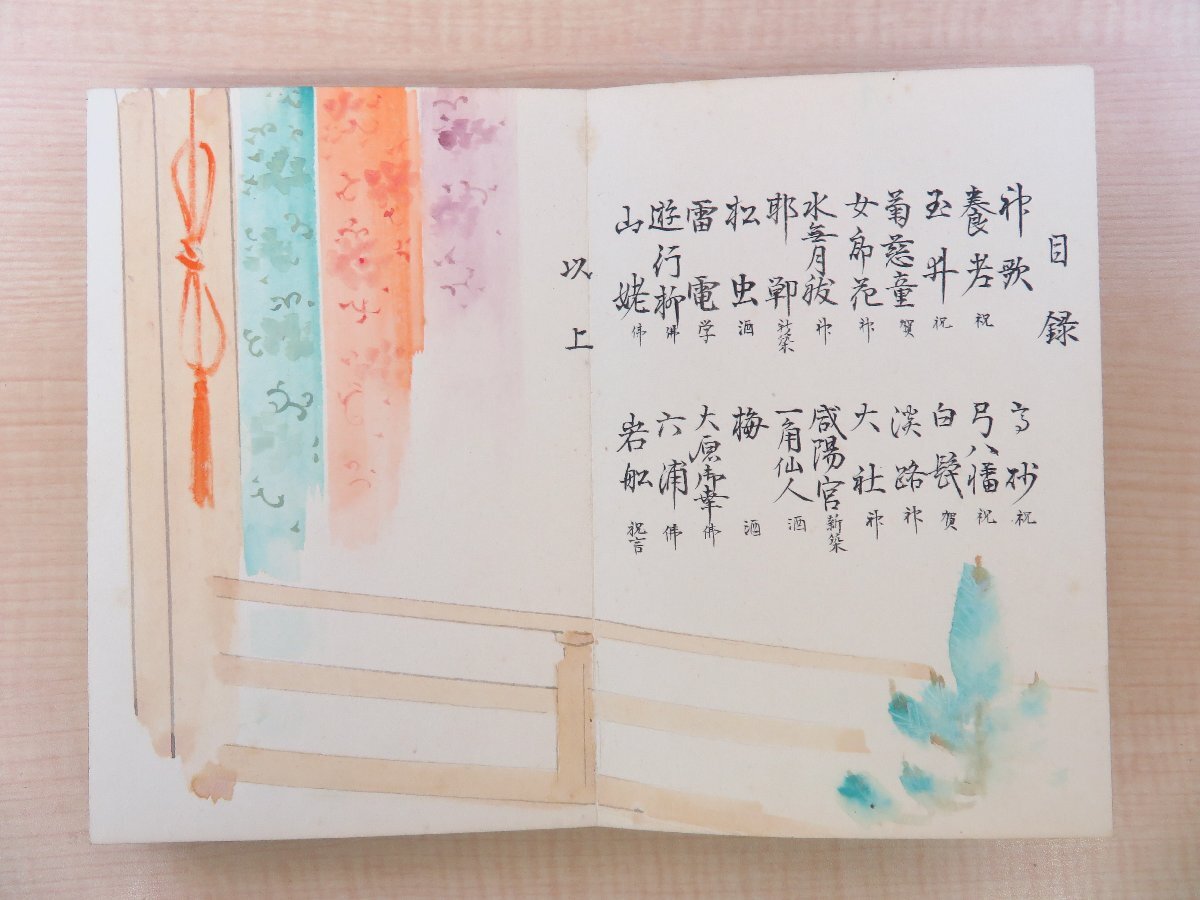 目録
神歌
養老 祝
玉井 祝
菊慈童 賀
女郎花 神
水無月祓 神
邯鄲 新築
松虫 酒
雷電 学
遊行柳 佛
山姥 佛
高砂 祝
弓八幡 祝
白髭 賀
淡路 神
大社 神
咸陽宮 新築
一角仙人 酒
梅 酒
大原御幸 佛
六浦 佛
岩船 祝言
以上